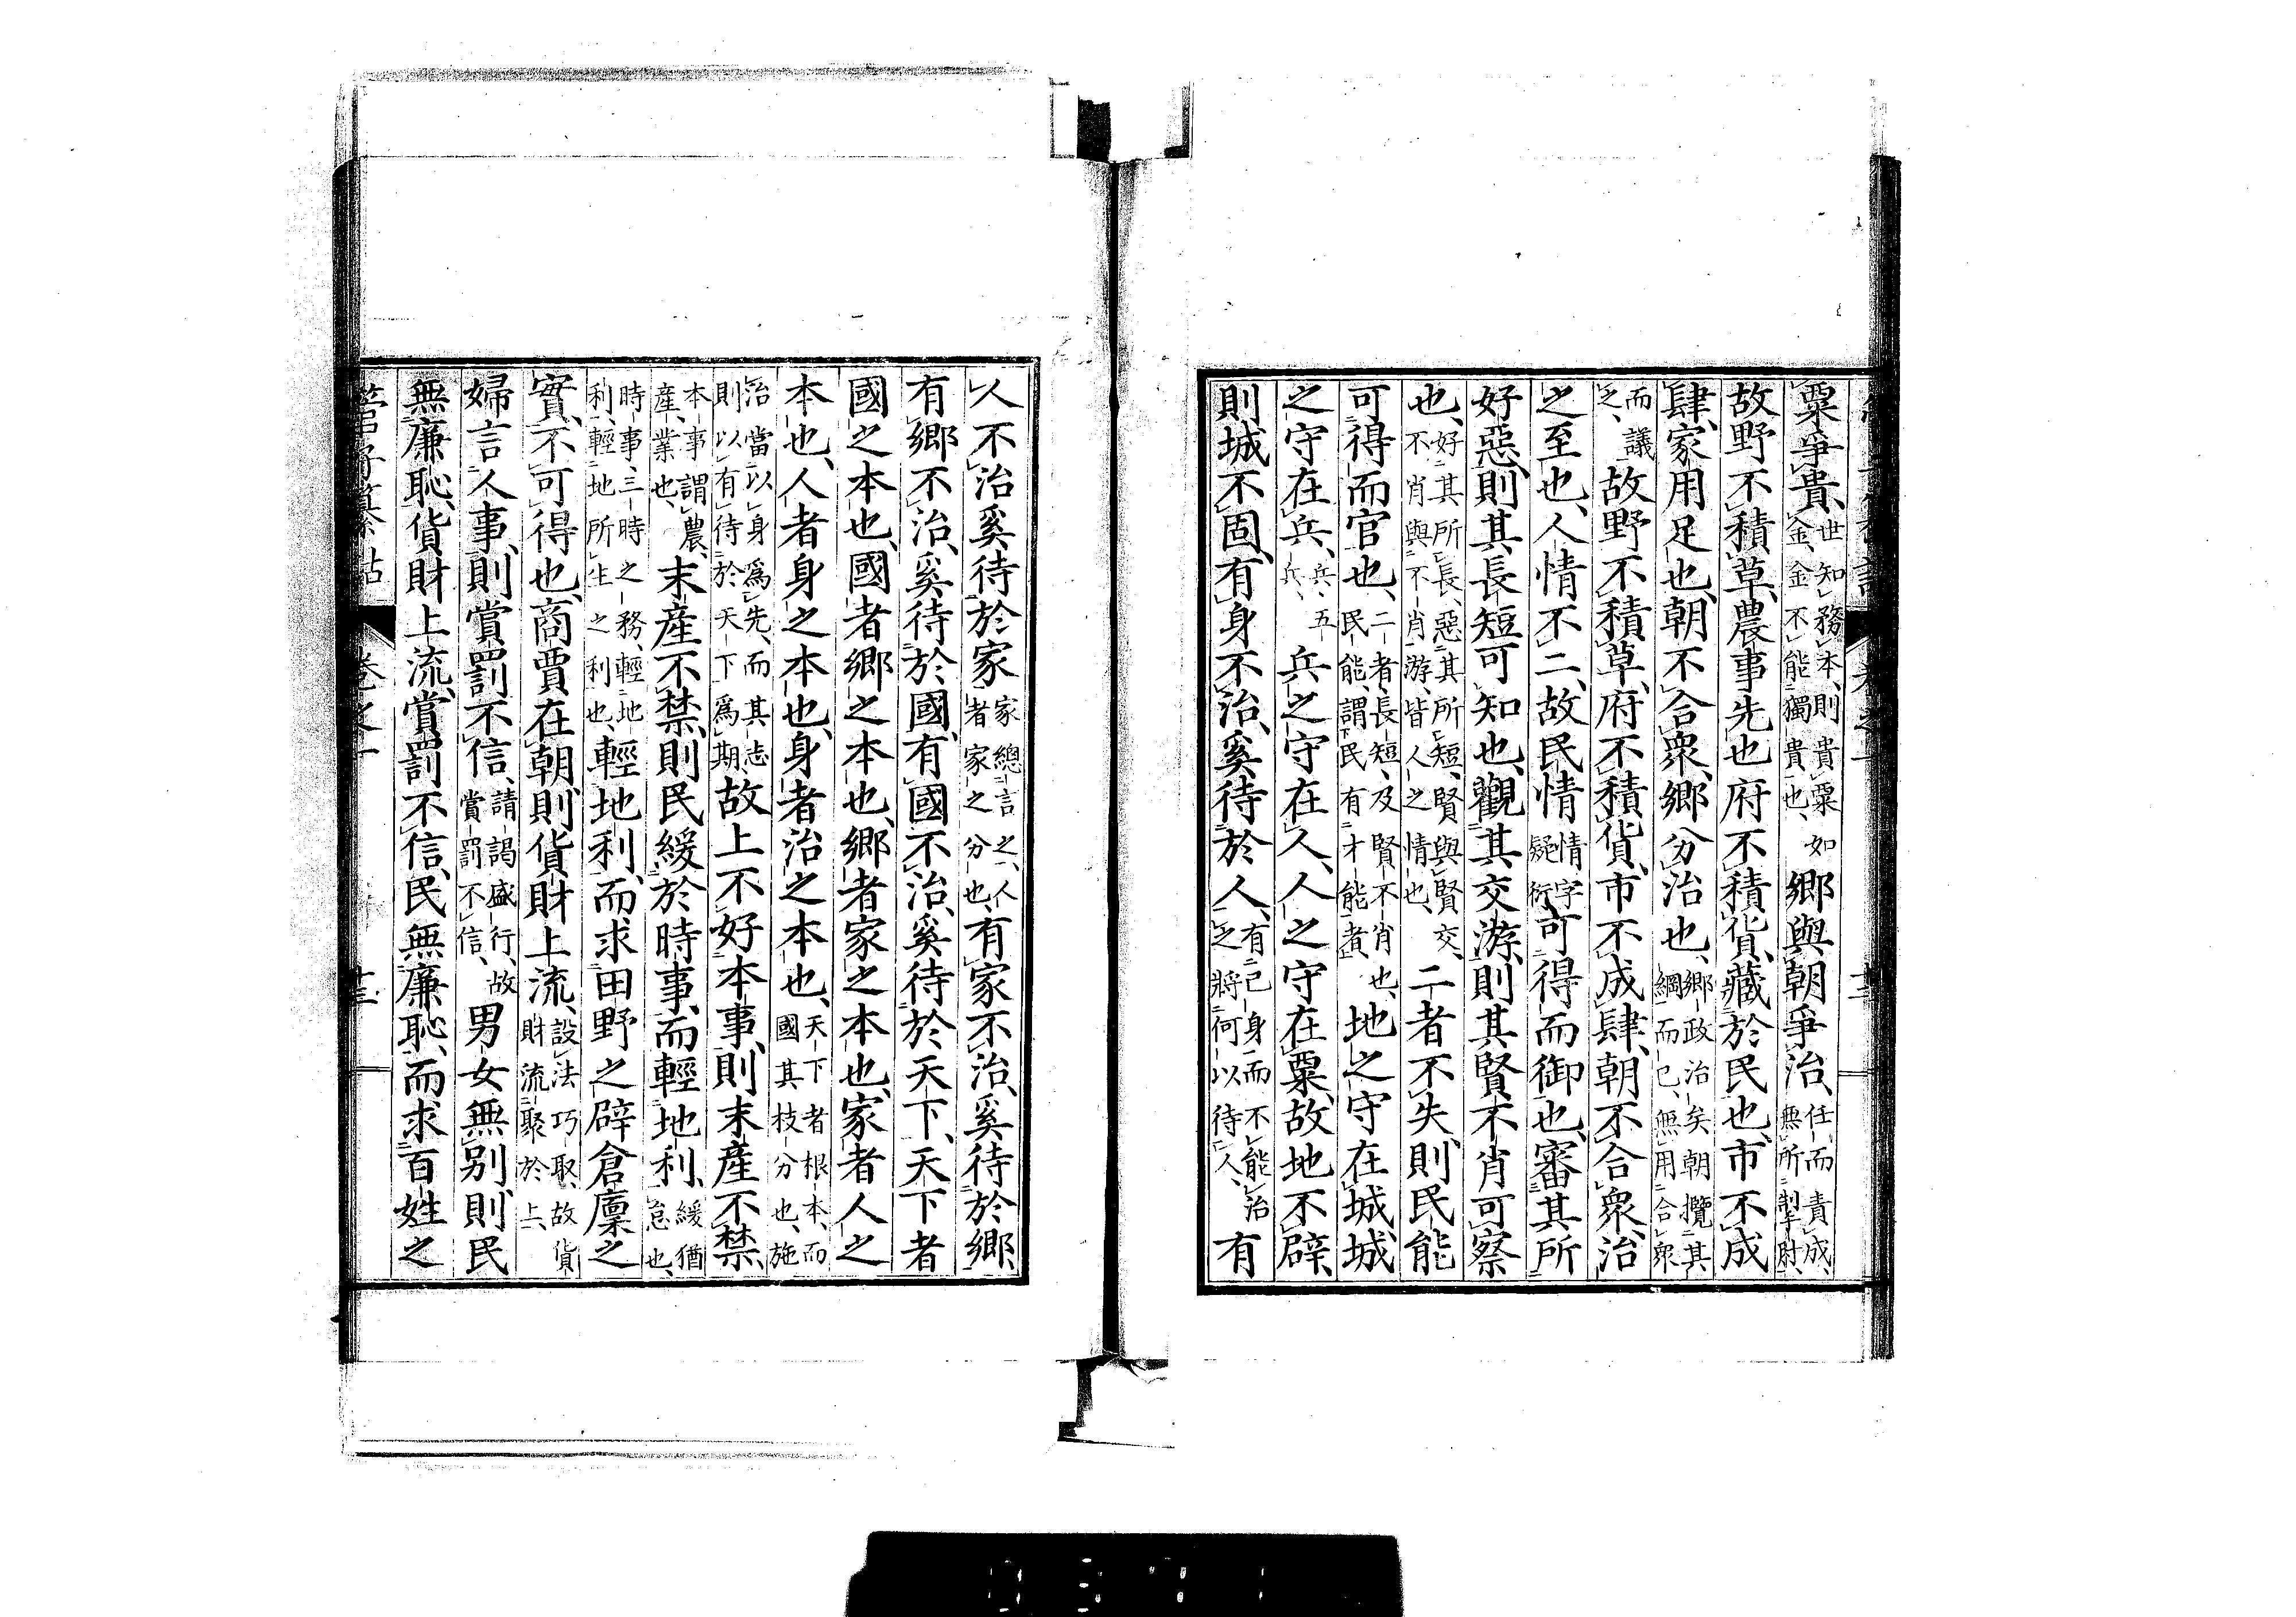 粟爭貴、世知務本、則貴粟如金、金不能獨貴也、鄉與朝爭治、任而責成、無所掣肘、
故野不積草、農事先也府不積貨、藏於民也、市不成
肆、家用足也、朝不合衆、鄉分治也、鄉政治矣朝攬其綱而已、無用合衆
而議之、故野不積草、府不積貨、市不成肆、朝不合衆、治
之至也、人情不二、故民情情字疑衍可得而御也、審其所
好惡、則其長短可知也、觀其交游、則其賢不肖可察
也、好其所長、惡其所短、賢與賢交、不肖與不肖游、皆人之情也、二者不失、則民能
可得而官也、二者、長短、及賢不肖也、民能、謂民有才能者、地之守在城、城
之守在兵、兵、五兵、兵之守在人、人之守在粟、故地不辟、
則城不固、有身不治、奚待於人、有己身而不能治之將何以待人、有
人不治奚待於家家總言之、人者家之分也、有家不治、奚待於鄉、
有鄉不治、奚待於國、有國不治、奚待於天下、天下者
國之本也、國者鄉之本也、鄉者家之本也、家者人之
本也、人者身之本也、身者治之本也、天下者根本、而國其枝分也、施
治當以身爲先、而其志則以有待於天下爲期故上不好本事、則末產不禁、
本事謂農、末產業也、末產不禁、則民緩於時事、而輕地利、緩猶怠也、
時事、三時之務、輕地利、輕地所生之利也、輕地利、而求田野之辟倉廩之
實、不可得也、商賈在朝、則貨財上流、設法巧取、故貨財流聚於上、
婦言人事、則賞罰不信、請謁盛行、故賞罰不信、男女無別、則民
無廉恥、貨財上流、賞罰不信、民無廉恥、而求百姓之
管子纂詁 卷之一